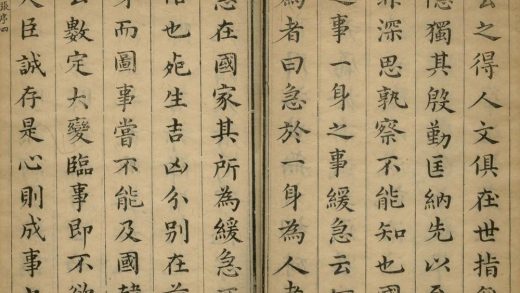 之得人文俱在世指
獨其殷勤匡納先以
深思孰察不能知也國
之事一身之事緩急云
為者曰急於一身為人者
急在國家其所為緩急
也死生吉凶分別在前
而圖事嘗不能及國韓
數定大變臨事即不欲
臣誠存是心則成事
張序四